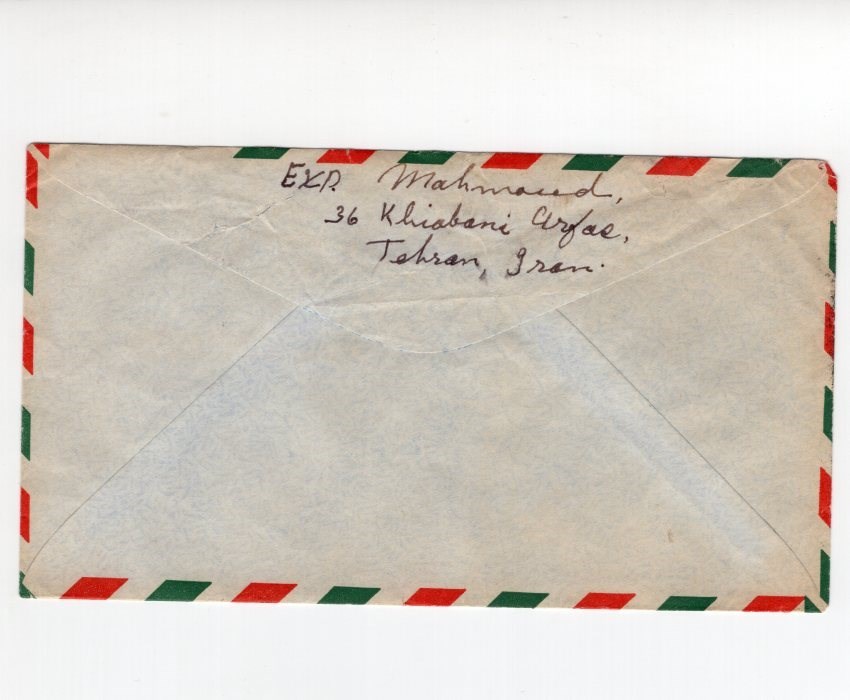 EXP. Mahmoud,
36 Khiabani Arfae,
Tehran, Iran.